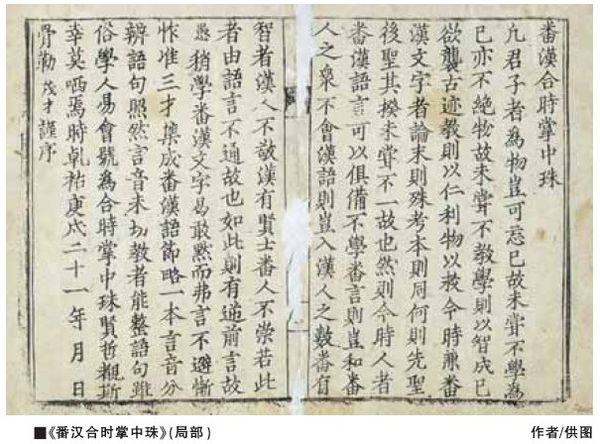 番漢合時掌中珠
凢君子者為物豈可忘己故未甞不學為
己亦不絶物故未甞不教學則以智成己
欲襲古迹教則以仁利物以救今時兼番
漢文字者論末則殊考本則同何則先聖
後聖其揆未甞不一故也然則今時人者
番漢語言可以俱備不學番言則豈和番
人之衆不會漢語則豈入漢人之數番有
智者漢人不敬漢有賢士番人不崇若此
者由語言不通故也如此則有逆前言故
愚稍學番漢文字曷敢默而弗言不避慚
怍准三才集成番漢語節略一本言音分
辨語句照然言音未切教者能整語句雖
俗學人易會號為合時掌中珠賢哲覩斯
幸莫哂焉時乹祐庚戌二十一年月日
骨勒茂才謹序
■《番汉合时掌中珠》(局部)
作者/供图